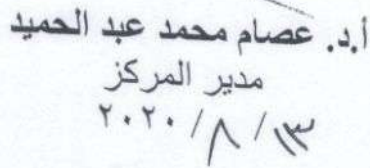 أ.د. عصام محمد عبد الحميد
مدير المركز
٢٠٢٠/٨/١٣